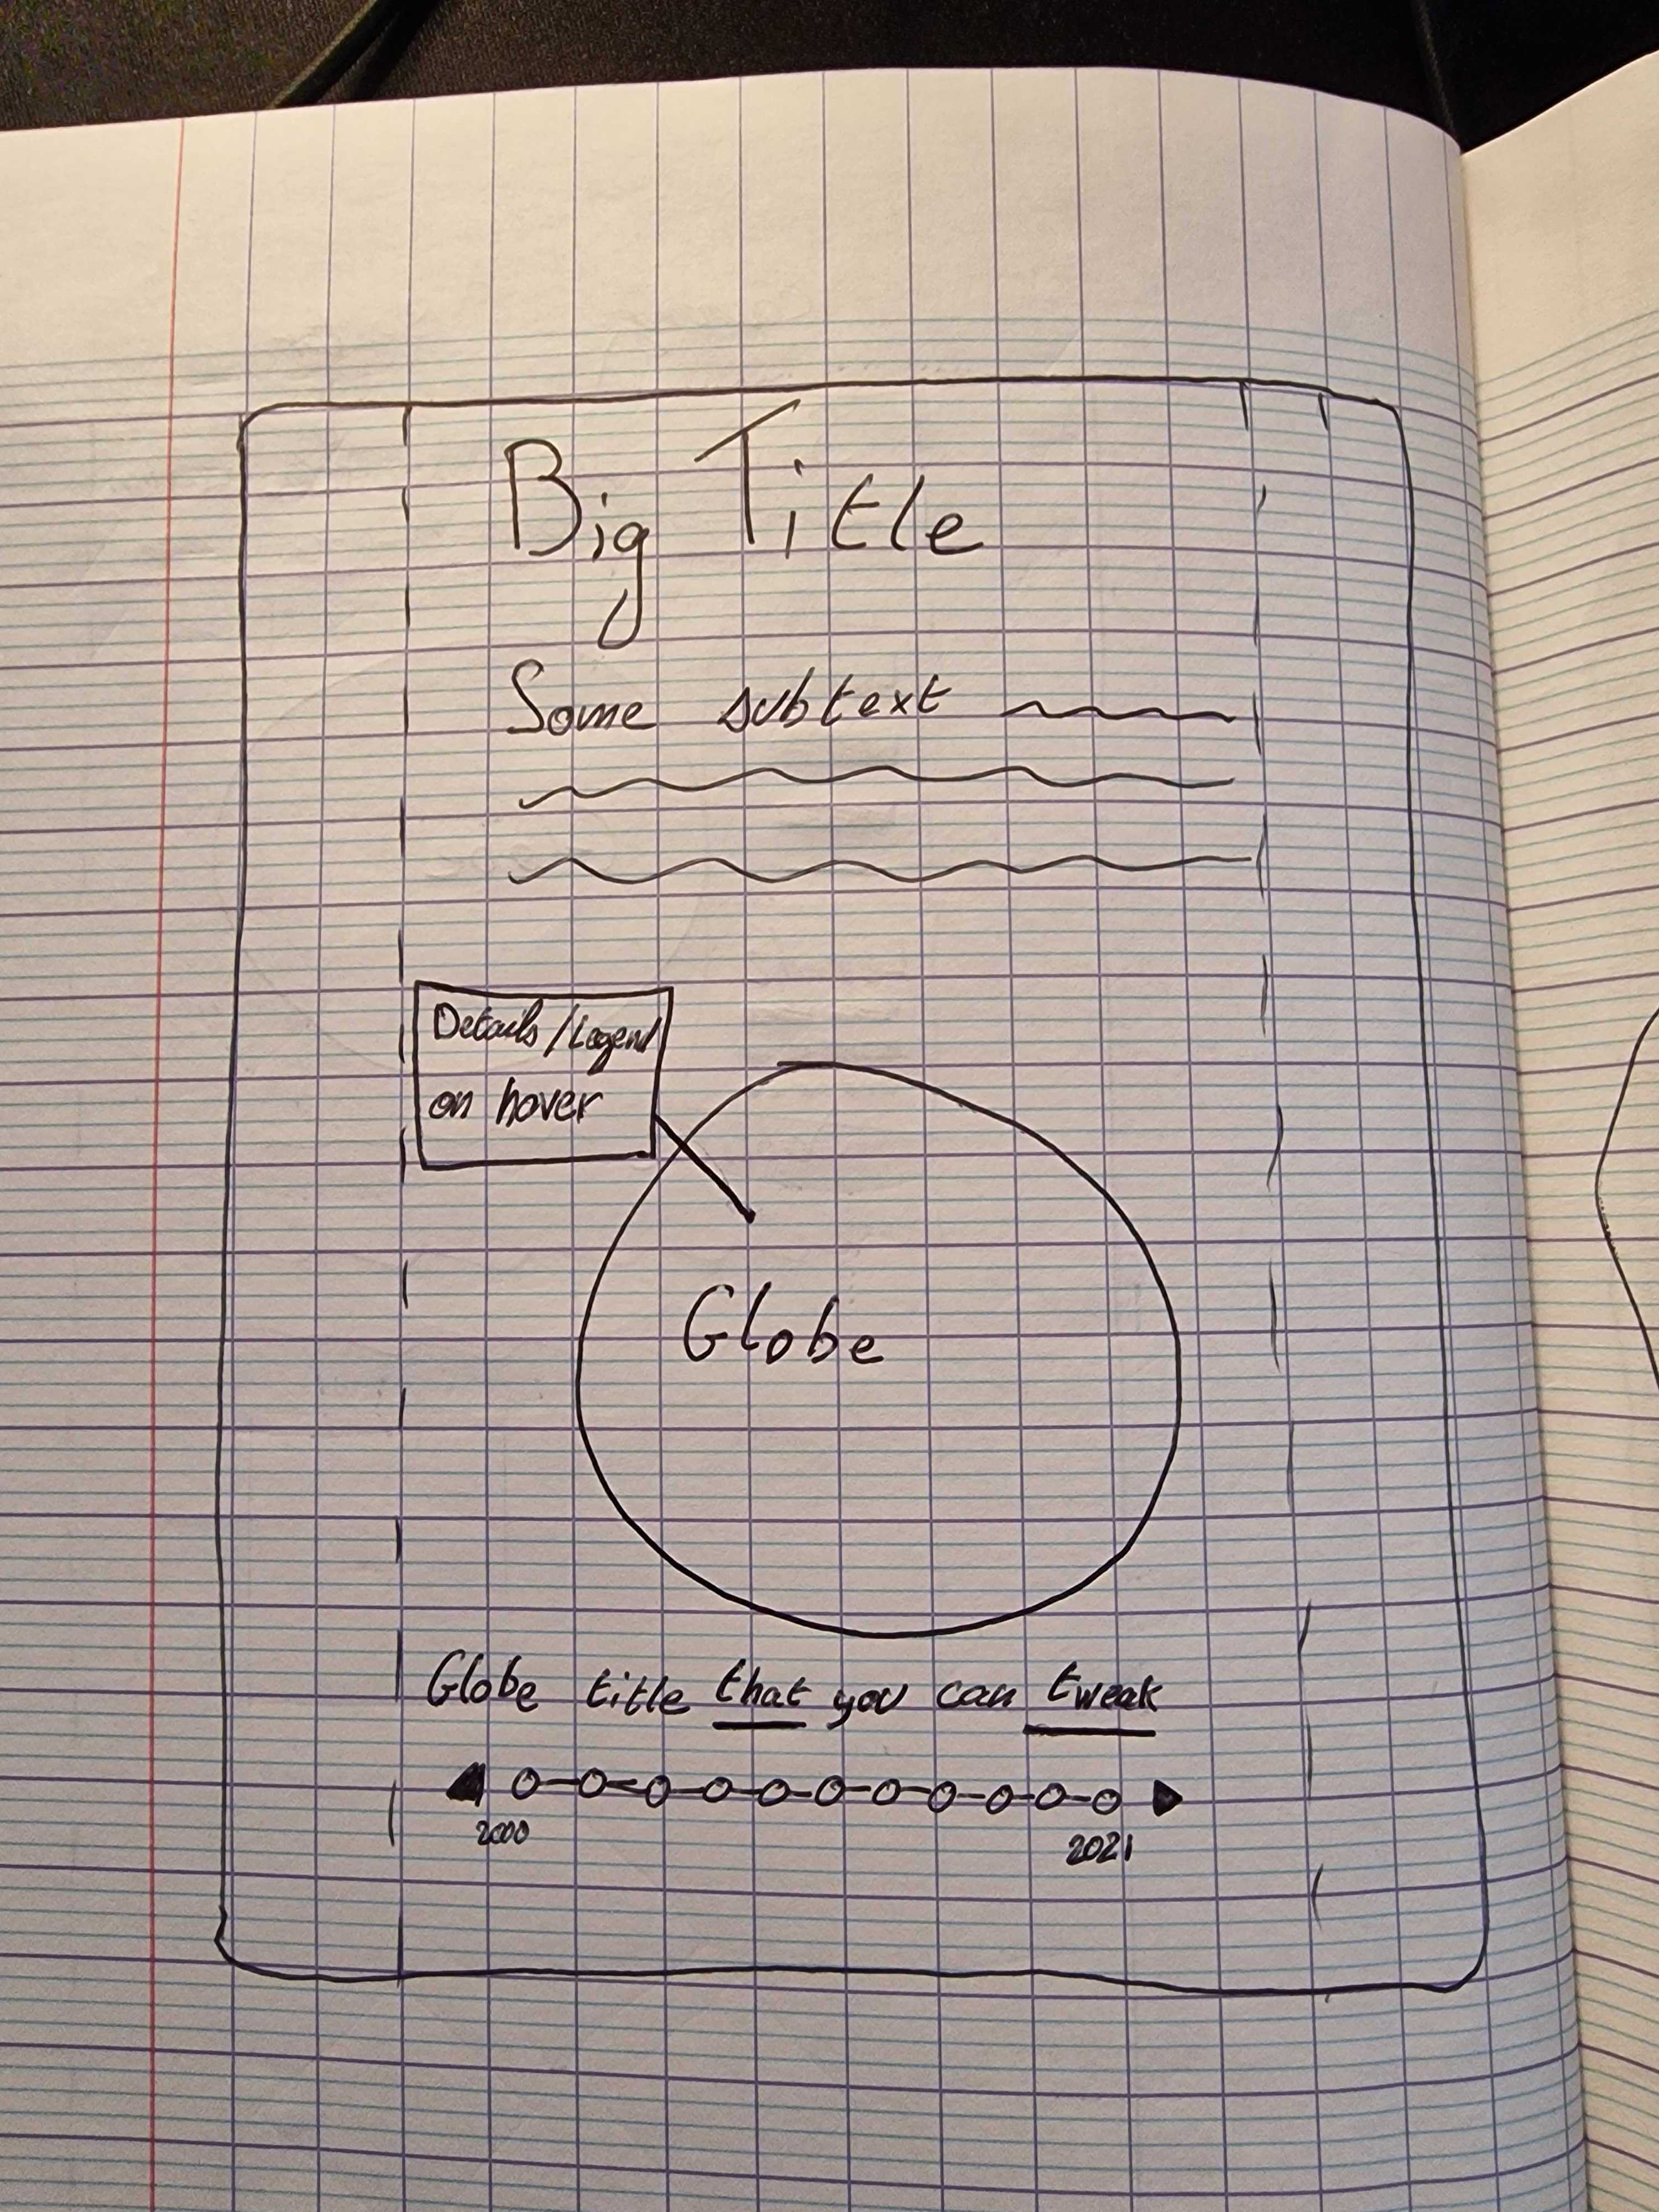 Big Title
Some subtext
Details/Legend
on hover
Globe
Globe title that you can tweak
2000
2021